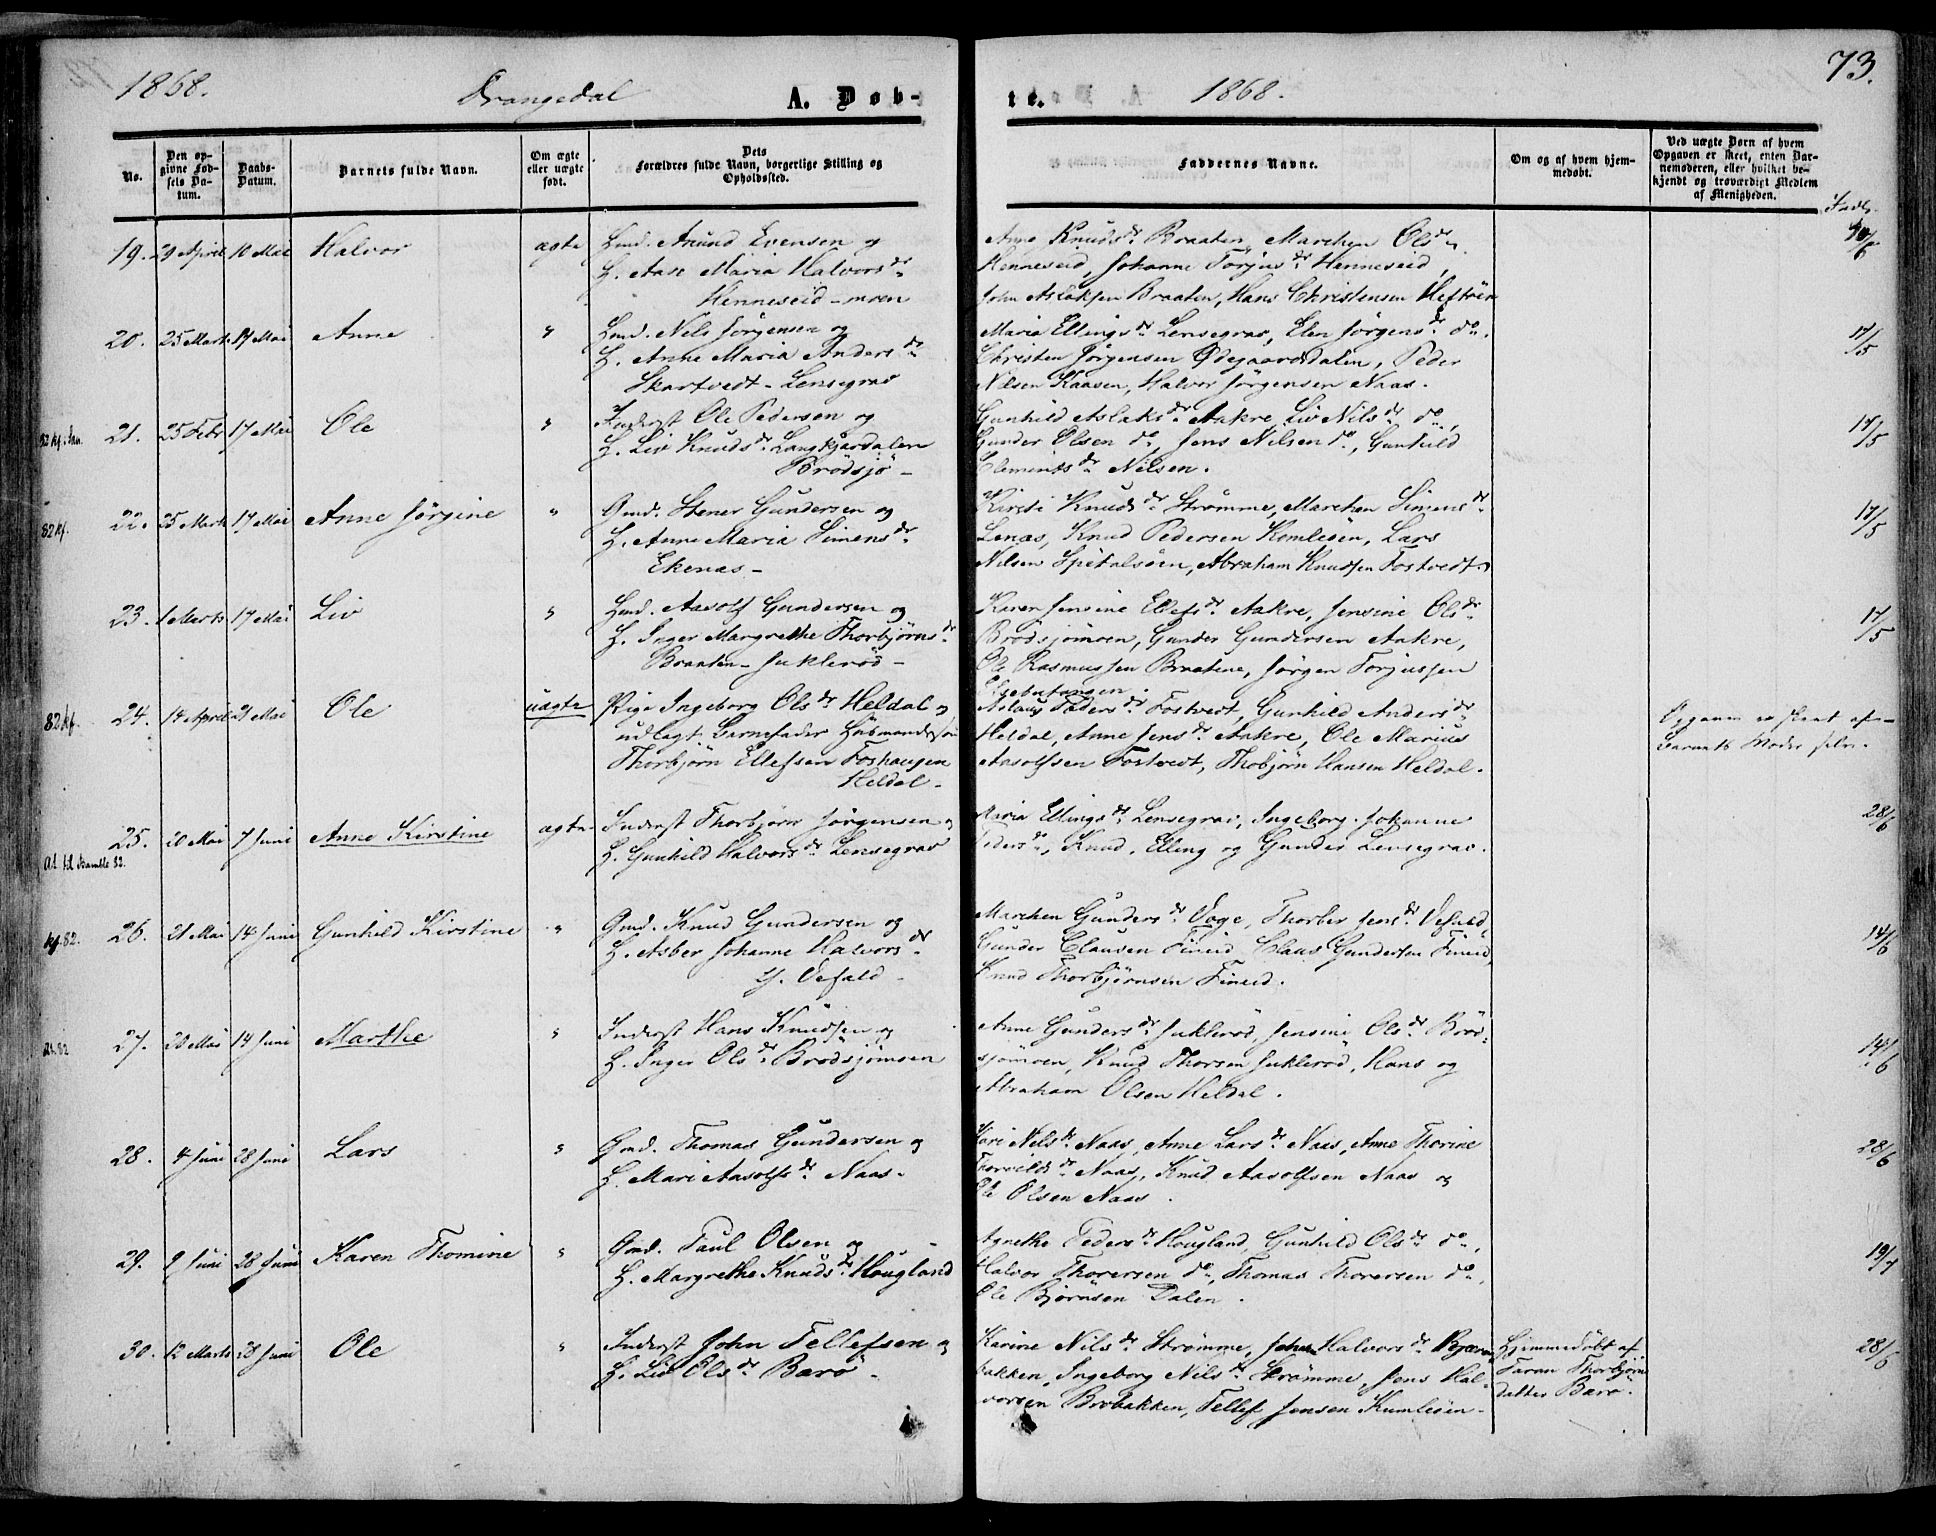 1868. Drangedal A. Døb-
te. 1868. 73.
No.
Den op-
givne Fød-
sels Da-
tum.
Daabs-
Datum.
Barnets fulde Navn.
Om ægte
eller uægte
født.
Dets
Forældres fulde Navn, borgerlige Stilling og
Opholdssted.
Faddernes Navne.
Om og af hvem hjem-
medøbt.
Ved uægte Børn af hvem
Opgaven er skeet, enten Bar-
nemoderen, eller hvilket be-
kjendt og troværdigt Medlem
af Menigheden.
19. 29 April 10 Mai Halvor ægte Hmd. Anund Evensen og
H. Aase Maria Halvorsdr
Henneseid-moen
Anne Knudsdr Braaten, Marchen Olsdr
Henneseid, Johanne Torjusdr Henneseid,
John Aslaksen Braaten, Hans Christensen Heftøen
20. 25 Marts 17 Mai Anne " Hmd. Nels Jörgensen og
H. Anne Maria Andersdr
Skartvedt - Lensegrav
Maria Ellingsdr Lensegrav, Elen Jörgensdr do.
Christen Jörgensen Ødegaardsdalen, Peder
Nilsen Kaasen, Halvor Jörgensen Naas.
17/5
21. 25 Febr 17 Mai Ole " Inderst Ole Pedersen og
H. Liv Knudsdr Langkjærdalen
Brödsjö -
Gunhild Aslaksdr Aakre, Liv Nilsdr do,
Gunder Olsen do, Jens Nilsen do, Gunhild
Clemmitsdr Nilsen.
17/5
82 kf.
22. 25 Marts 17 Mai Anne Jörgine " Gmd. Stener Gundersen og
H. Anne Maria Simensdr
Ekenæs -
Kirsti Knudsdr Strömme, Marchen Simensdr
Lenæs, Knud Pedersen Komleöen, Lars
Nilsen Spetalsöen, Abraham Knudsen Tostvedt.
17/5
23. 1 Marts 17 Mai Liv " Hmd. Aasolf Gundersen og
H. Inger Margrethe Thorbjörnsdr
Braaten - Juklerød -
Karen Jensine Ellefsdr Aakre, Jensine Olsdr
Brödsjömoen, Gunder Gundersen Aakre,
Ole Rasmussen Braatene, Jörgen Torjussen
17/5
82 kf.
24. 14 April 21 Mai Ole uægte Pige Ingeborg Olsdr Heldal og
udlagt Barnefader Husmandssøn
Thorbjörn Ellefsen Foshaugen
Heldal -
Aslaug Pedersdr Tostvedt, Gunhild Andersdr
Heldal, Anne Jensdr Aakre, Ole Marius
Aasolfsen Tostvedt, Thobjörn Hansen Heldal.
Opgaven er skeet af
Barnets Moder selv.
25. 20 Mai 7 Juni Anne Kirstine ægte Inderst Thorbjörn Jörgensen og
H. Gunhild Halvorsdr Lensegrav
Maria Ellingsdr Lensegrav, Ingeborg Johanne
Pedersdr, Knud, Elling og Gunder Lensegrav.
28/6
At. til Bamble 82.
kf 82.
26. 21 Mai 14 Juni Gunhild Kirstine " Gmd. Knud Gundersen og
H. Asber Johanne Halvorsdr
Y. Vefald -
Marchen Gundersdr Voge, Thorber Jensdr Vefald,
Gunder Clausen Fineid, Claus Gundersen Fineid,
Knud Thorbjörnsen Fineid.
14/6
At. 82
27. 20 Mai 14 Juni Marthe " Inderst Hans Knudsen og
H. Inger Olsdr Brödsjömoen
Anne Gundersdr Juklerød, Jensine Olsdr Bröd-
sjömoen, Knud Thorsen Juklerød, Hans og
Abraham Olsen Heldal.
14/6
28. 4 Juni 28 Juni Lars " Gmd. Thomas Gundersen og
H. Mari Aasolfsdr Naas -
Kari Nilsdr Naas, Anne Larsdr Naas, Anne Thorine
Thorvildsdr Naas, Knud Aasolfsen Naas og
Ole Olsen Naas.
28/6
29. 9 Juni 28 Juni Karen Thomine " Gmd. Paul Olsen og
H. Margrethe Knudsdr Hougland
Agnethe Pedersdr Hougland, Gunhild Olsdr do,
Halvor Thorersen do, Thomas Thorersen do,
Ole Bjørnsen Dalen.
19/7
30. 12 Marts 28 Juni Ole " Inderst John Tellefsen og
H. Liv Olsdr Barö -
Karine Nilsdr Strömme, Halvorsdr
bakken, Ingeborg Nilsdr Strömme, Jens Hal-
vorsen Brobakken, Tellef Jensen Kumleöen.
Hjemmedöbt af
Taran Thorbjörns
datter Barö.
28/6